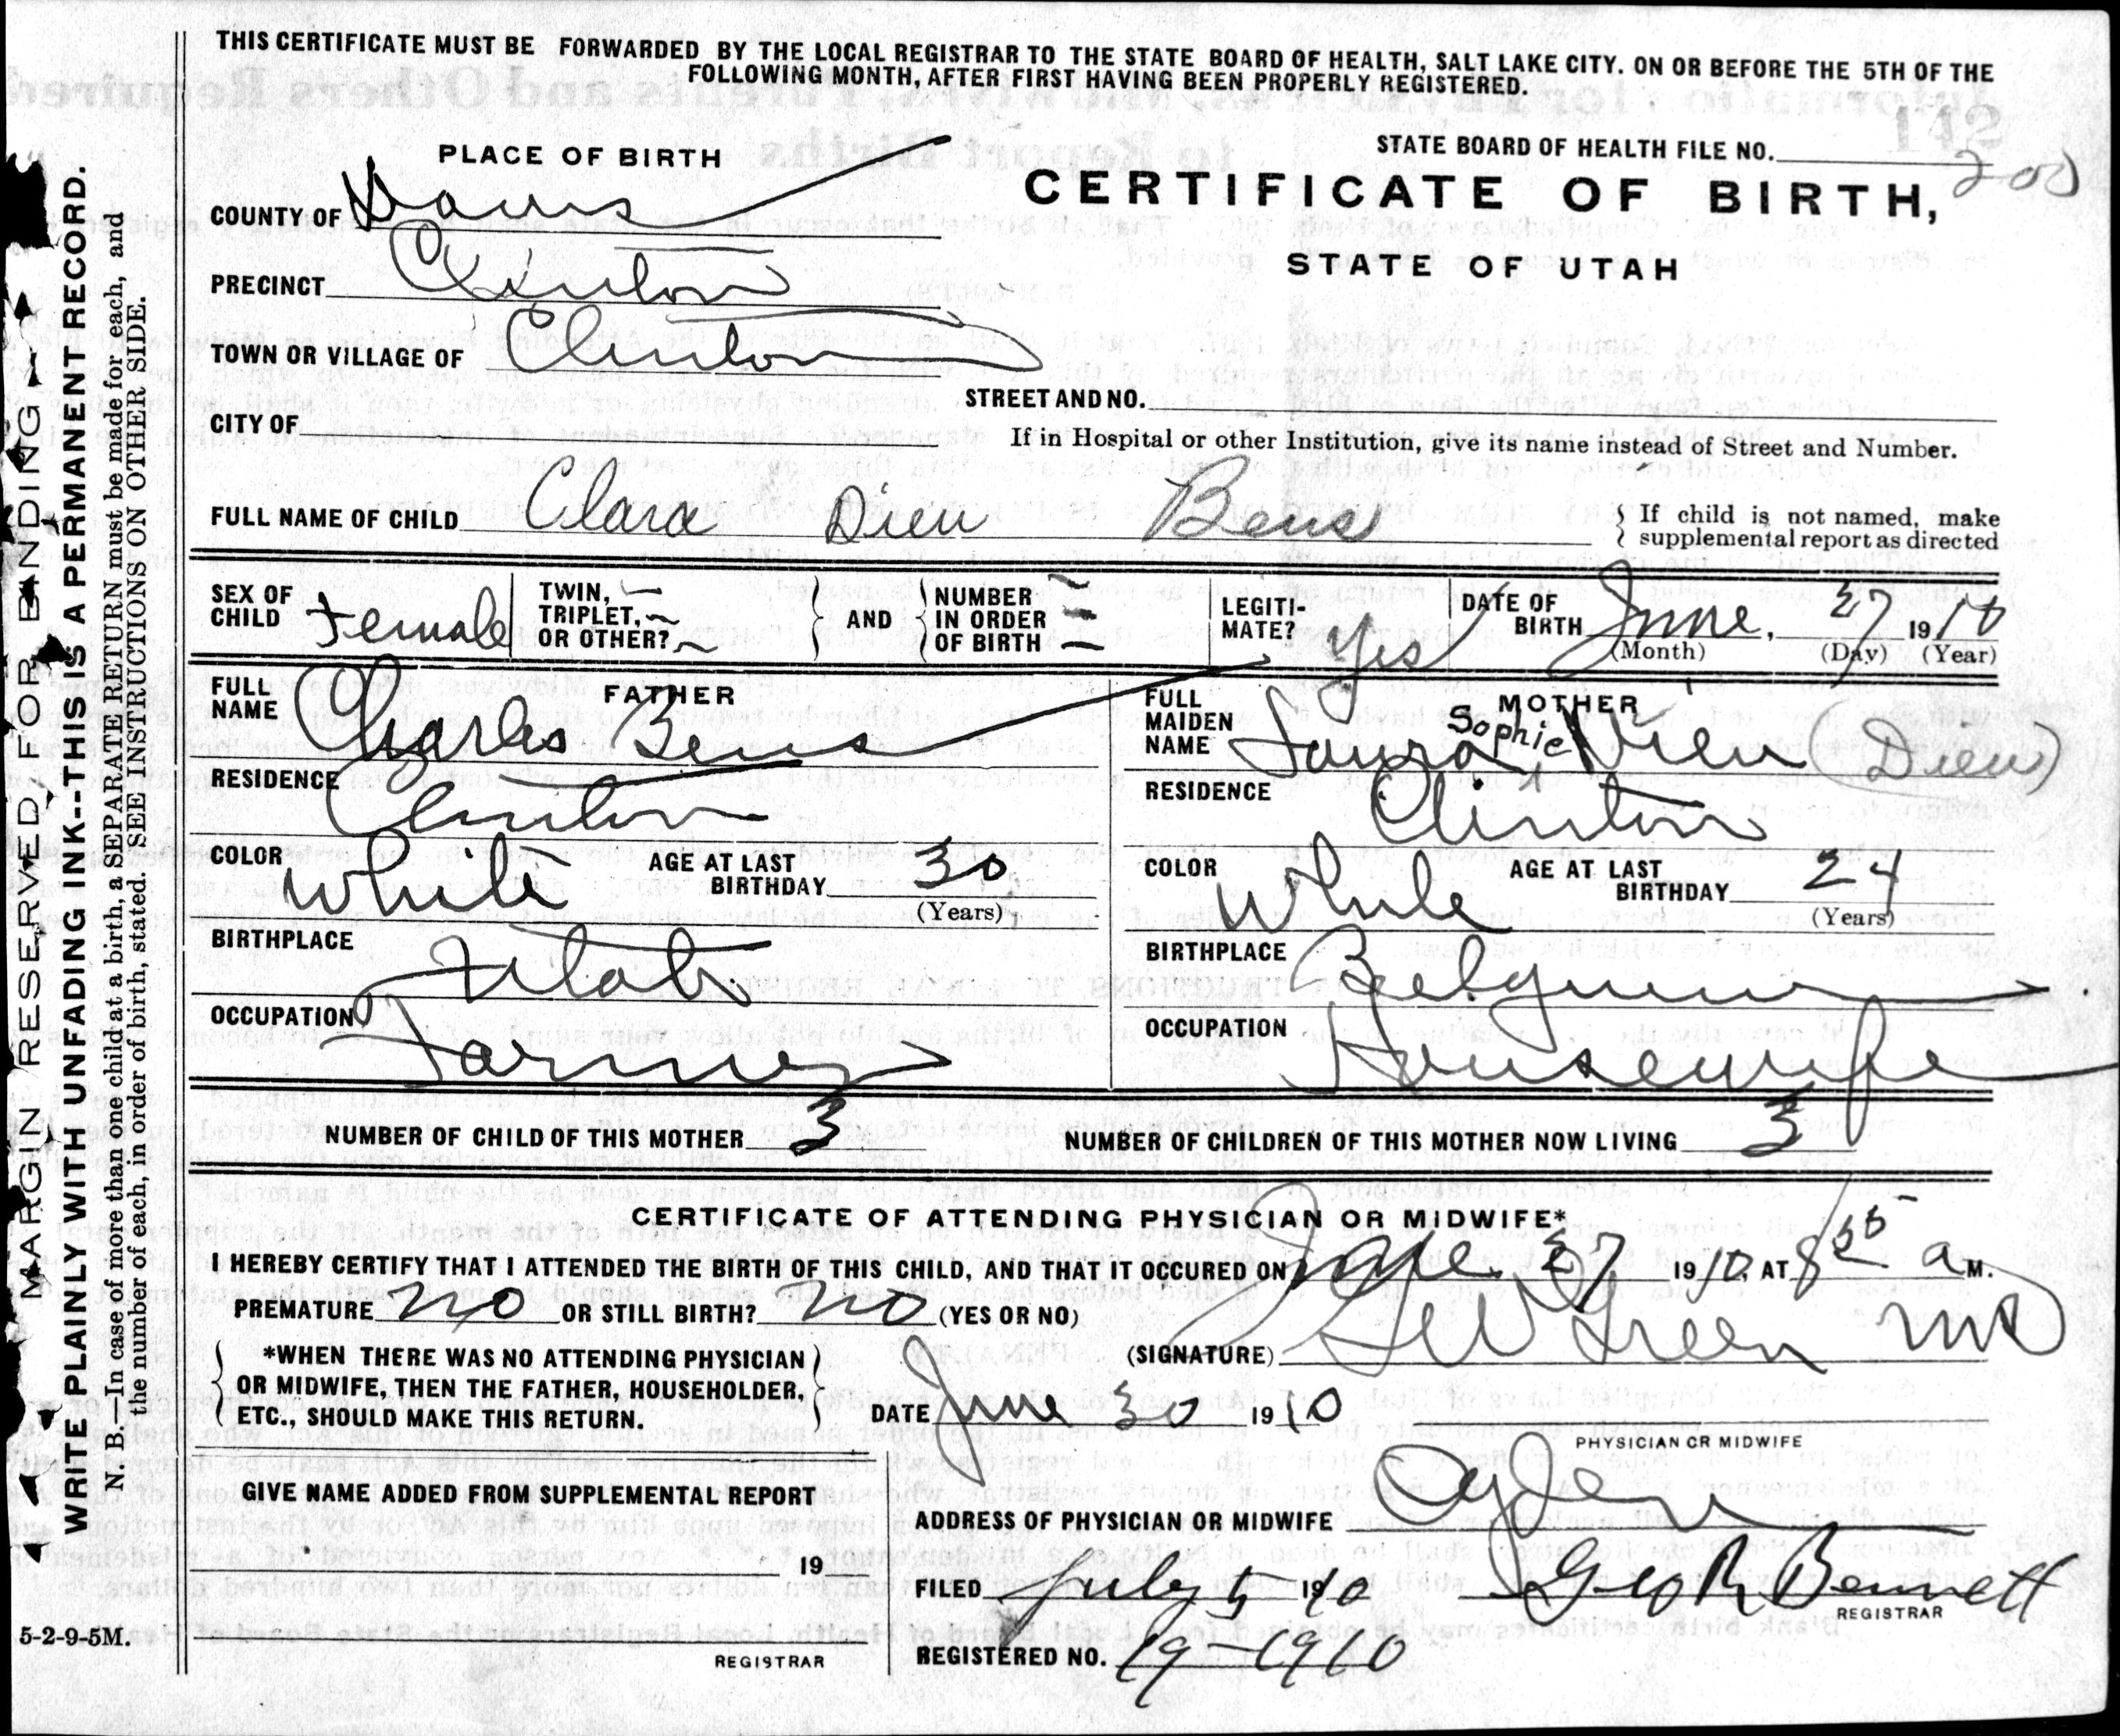 THIS CERTIFICATE MUST BE FORWARDED BY THE LOCAL REGISTRAR TO THE STATE BOARD OF HEALTH, SALT LAKE CITY. ON OR BEFORE THE 5TH OF THE
FOLLOWING MONTH, AFTER FIRST HAVING BEEN PROPERLY REGISTERED.
MARGIN RESERVED FOR BINDING
WRITE PLAINLY WITH UNFADING INK--THIS IS A PERMANENT RECORD.
N. B.—In case of more than one child at a birth, a SEPARATE RETURN must be made for each, and
the number of each, in order of birth, stated. SEE INSTRUCTIONS ON OTHER SIDE.
PLACE OF BIRTH
STATE BOARD OF HEALTH FILE NO. 200
COUNTY OF Davis
CERTIFICATE OF BIRTH,
STATE OF UTAH
PRECINCT Clinton
TOWN OR VILLAGE OF Clinton
STREET AND NO.
CITY OF
If in Hospital or other Institution, give its name instead of Street and Number.
FULL NAME OF CHILD Clara Dieu Beus
If child is not named, make
supplemental report as directed
SEX OF CHILD Female
TWIN, —
TRIPLET, —
OR OTHER? —
AND
NUMBER —
IN ORDER —
OF BIRTH —
LEGITI-
MATE? Yes
DATE OF
BIRTH June, 27 1910
(Month) (Day) (Year)
FATHER
FULL NAME Charles Beus
RESIDENCE Clinton
COLOR White AGE AT LAST BIRTHDAY 30
(Years)
BIRTHPLACE Utah
OCCUPATION Farmer
MOTHER
FULL MAIDEN NAME Laura Sophie (Dieu)
RESIDENCE Clinton
COLOR White AGE AT LAST BIRTHDAY 24
(Years)
BIRTHPLACE Belgium
OCCUPATION Housewife
NUMBER OF CHILD OF THIS MOTHER 3 NUMBER OF CHILDREN OF THIS MOTHER NOW LIVING 3
CERTIFICATE OF ATTENDING PHYSICIAN OR MIDWIFE*
I HEREBY CERTIFY THAT I ATTENDED THE BIRTH OF THIS CHILD, AND THAT IT OCCURED ON June 27 1910, AT 8 55 a M.
PREMATURE no OR STILL BIRTH? no (YES OR NO)
*WHEN THERE WAS NO ATTENDING PHYSICIAN
OR MIDWIFE, THEN THE FATHER, HOUSEHOLDER,
ETC., SHOULD MAKE THIS RETURN.
(SIGNATURE) Green MD
DATE June 30 1910
PHYSICIAN OR MIDWIFE
GIVE NAME ADDED FROM SUPPLEMENTAL REPORT
19
REGISTRAR
ADDRESS OF PHYSICIAN OR MIDWIFE Ogden
FILED July 5 1910 Geo R Bennett
REGISTRAR
REGISTERED NO. 19-1910
5-2-9-5M.